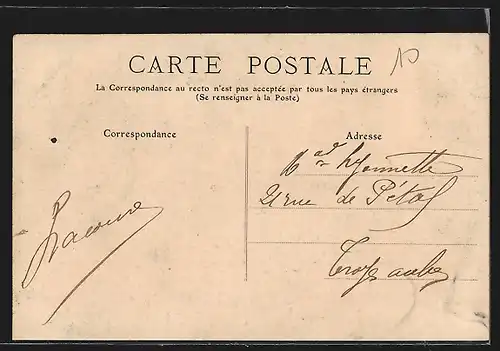 CARTE POSTALE
10
La Correspondance au recto n'est pas acceptée par tous les pays étrangers
(Se renseigner à la Poste)
Correspondance
Adresse
Lyonnette
rue de
Troyes aube